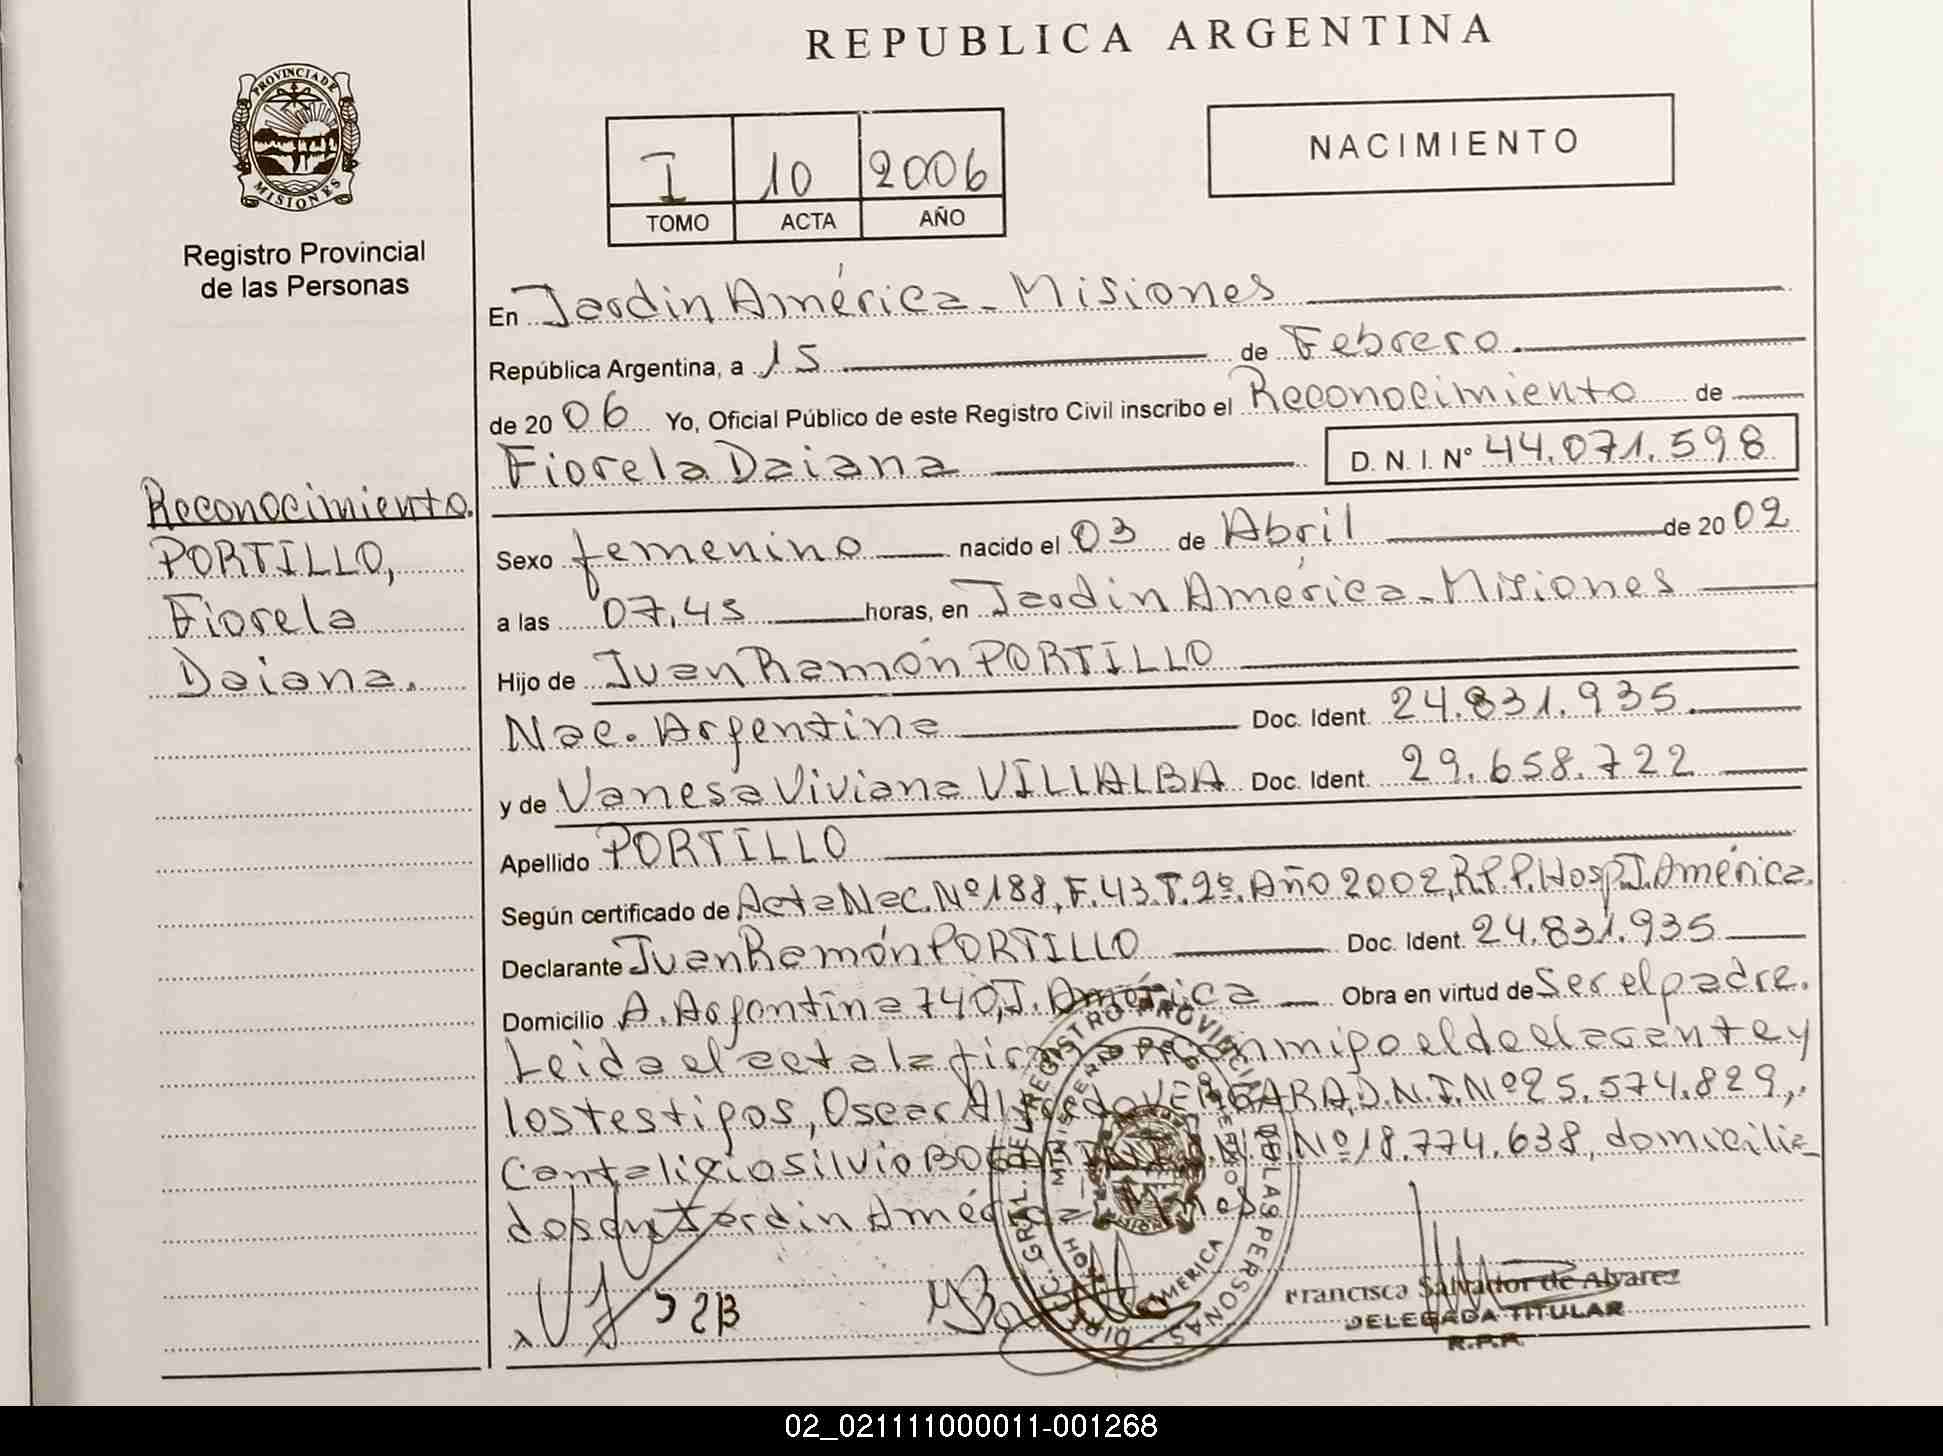 REPUBLICA ARGENTINA
PROVINCIA DE
MISIONES
Registro Provincial
de las Personas
I 10 2006
TOMO ACTA AÑO
NACIMIENTO
En Jardin América - Misiones
República Argentina, a 15 de Febrero
de 2006 Yo, Oficial Público de este Registro Civil inscribo el Reconocimiento de
Fiorela Daiana D. N. I. Nº 44.071.598
Reconocimiento.
PORTILLO,
Fiorela
Daiana.
Sexo femenino nacido el 03 de Abril de 2002
a las 07,45 horas, en Jardin América - Misiones
Hijo de Juan Ramón PORTILLO
Nac. Argentina Doc. Ident. 24.831.935
y de Vanesa Viviana VILLALBA Doc. Ident. 29.658.722
Apellido PORTILLO
Según certificado de Acta Nac. Nº 188, F. 43. T. 2º. Año 2002, R.P.P. Hosp. J. América.
Declarante Juan Ramón PORTILLO Doc. Ident. 24.831.935
Domicilio A. Argentina 740, J. América Obra en virtud de Ser el padre.
Leida el acta la firman conmigo el declarante y
los testigos, Oscar Alfredo VERGARA, D.N.I. Nº 25.574.829,
Cantalicio Silvio D.N.I. Nº 18.774.638, domicilia
dos en Jardin América - Mnes
DIREC. GRAL. DEL REGISTRO PROVINCIAL DE LAS PERSONAS
AMERICA
Francisca Salvador de Alvarez
DELEGADA TITULAR
R.P.P.
02_021111000011-001268